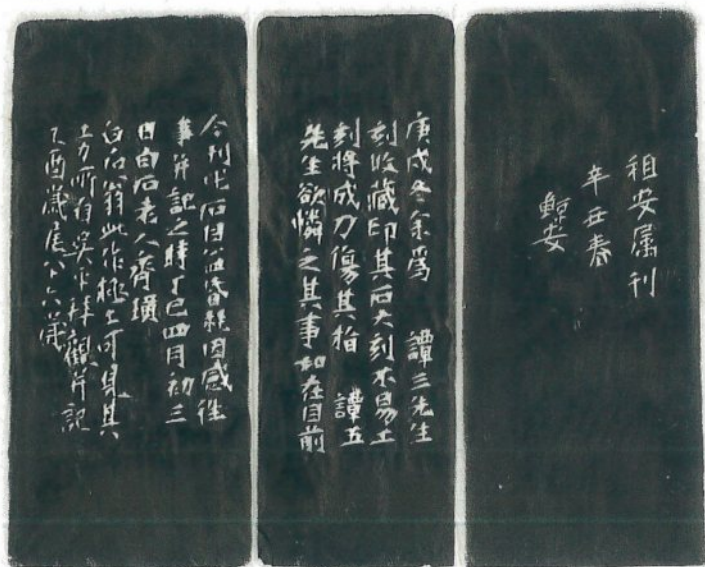 祖安属刊
辛丑春
鲸安
庚戌冬余为 譚三先生
刻收藏印其石大刻不易土
刻將成刀傷其指 譚五
先生欲憐之其事如在目前
今刊此石目益昏耗因感往
事并記之時丁巳四月初三
日白石老人齊璜
白石翁此作極工可見其
功所自吳下拜觀并記
乙酉歲尾